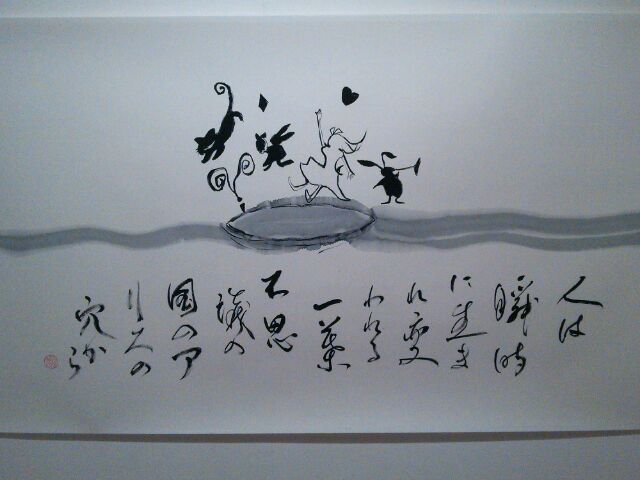 人は
瞬時
に生ま
れ変
われる
一葉
不思
議の
国のア
リスの
穴から